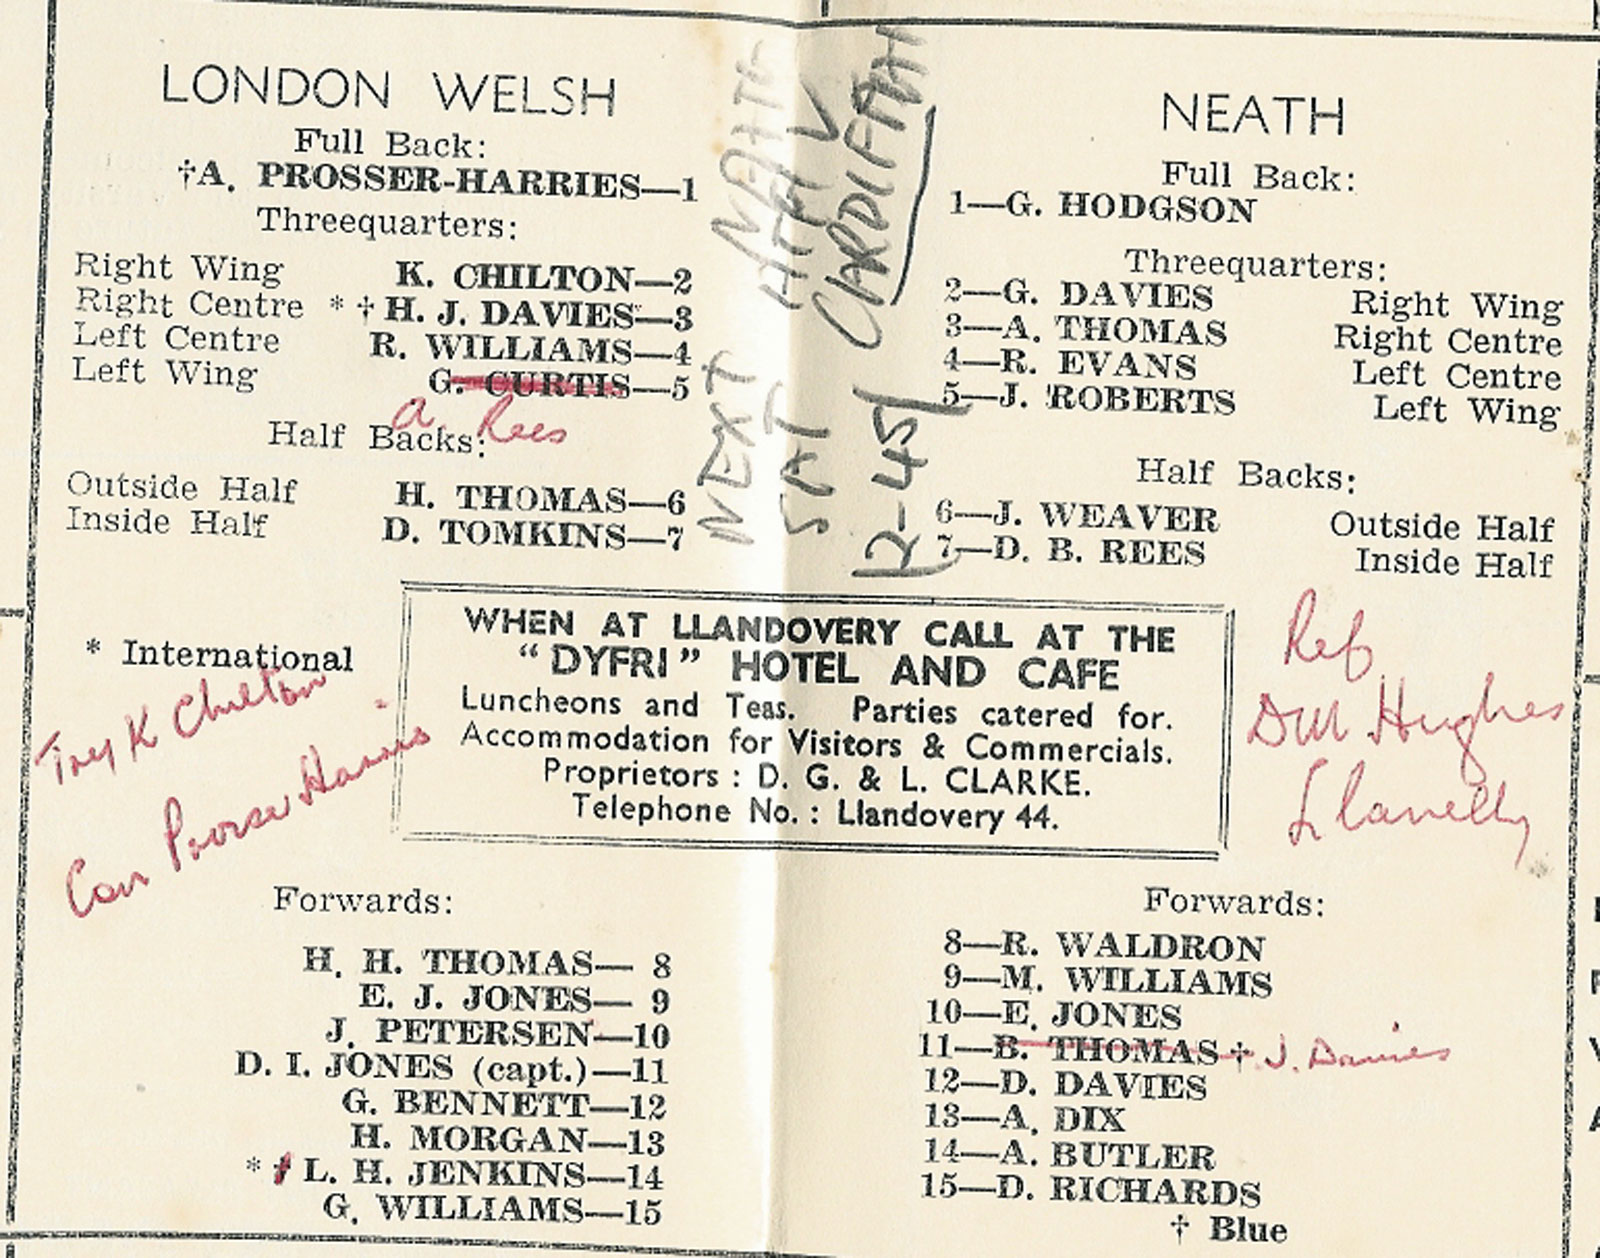 LONDON WELSH
Full Back:
†A. PROSSER-HARRIES—1
Threequarters:
Right Wing K. CHILTON—2
Right Centre * † H. J. DAVIES—3
Left Centre R. WILLIAMS—4
Left Wing G. CURTIS—5
A. Rees
Half Backs:
Outside Half H. THOMAS—6
Inside Half D. TOMKINS—7
* International
Try K Chilton
Con Prosser Harris
Forwards:
H. H. THOMAS— 8
E. J. JONES— 9
J. PETERSEN—10
D. I. JONES (capt.)—11
G. BENNETT—12
H. MORGAN—13
* † L. H. JENKINS—14
G. WILLIAMS—15
NEXT
SAT
CARDIFF
12-45
WHEN AT LLANDOVERY CALL AT THE
“DYFRI” HOTEL AND CAFE
Luncheons and Teas. Parties catered for.
Accommodation for Visitors & Commercials.
Proprietors : D. G. & L. CLARKE.
Telephone No. : Llandovery 44.
NEATH
Full Back:
1—G. HODGSON
Threequarters:
2—G. DAVIES Right Wing
3—A. THOMAS Right Centre
4—R. EVANS Left Centre
5—J. ROBERTS Left Wing
Half Backs:
6—J. WEAVER Outside Half
7—D. B. REES Inside Half
Ref
Hughes
Llanelly
Forwards:
8—R. WALDRON
9—M. WILLIAMS
10—E. JONES
11—B. THOMAS † J. Davies
12—D. DAVIES
13—A. DIX
14—A. BUTLER
15—D. RICHARDS
† Blue